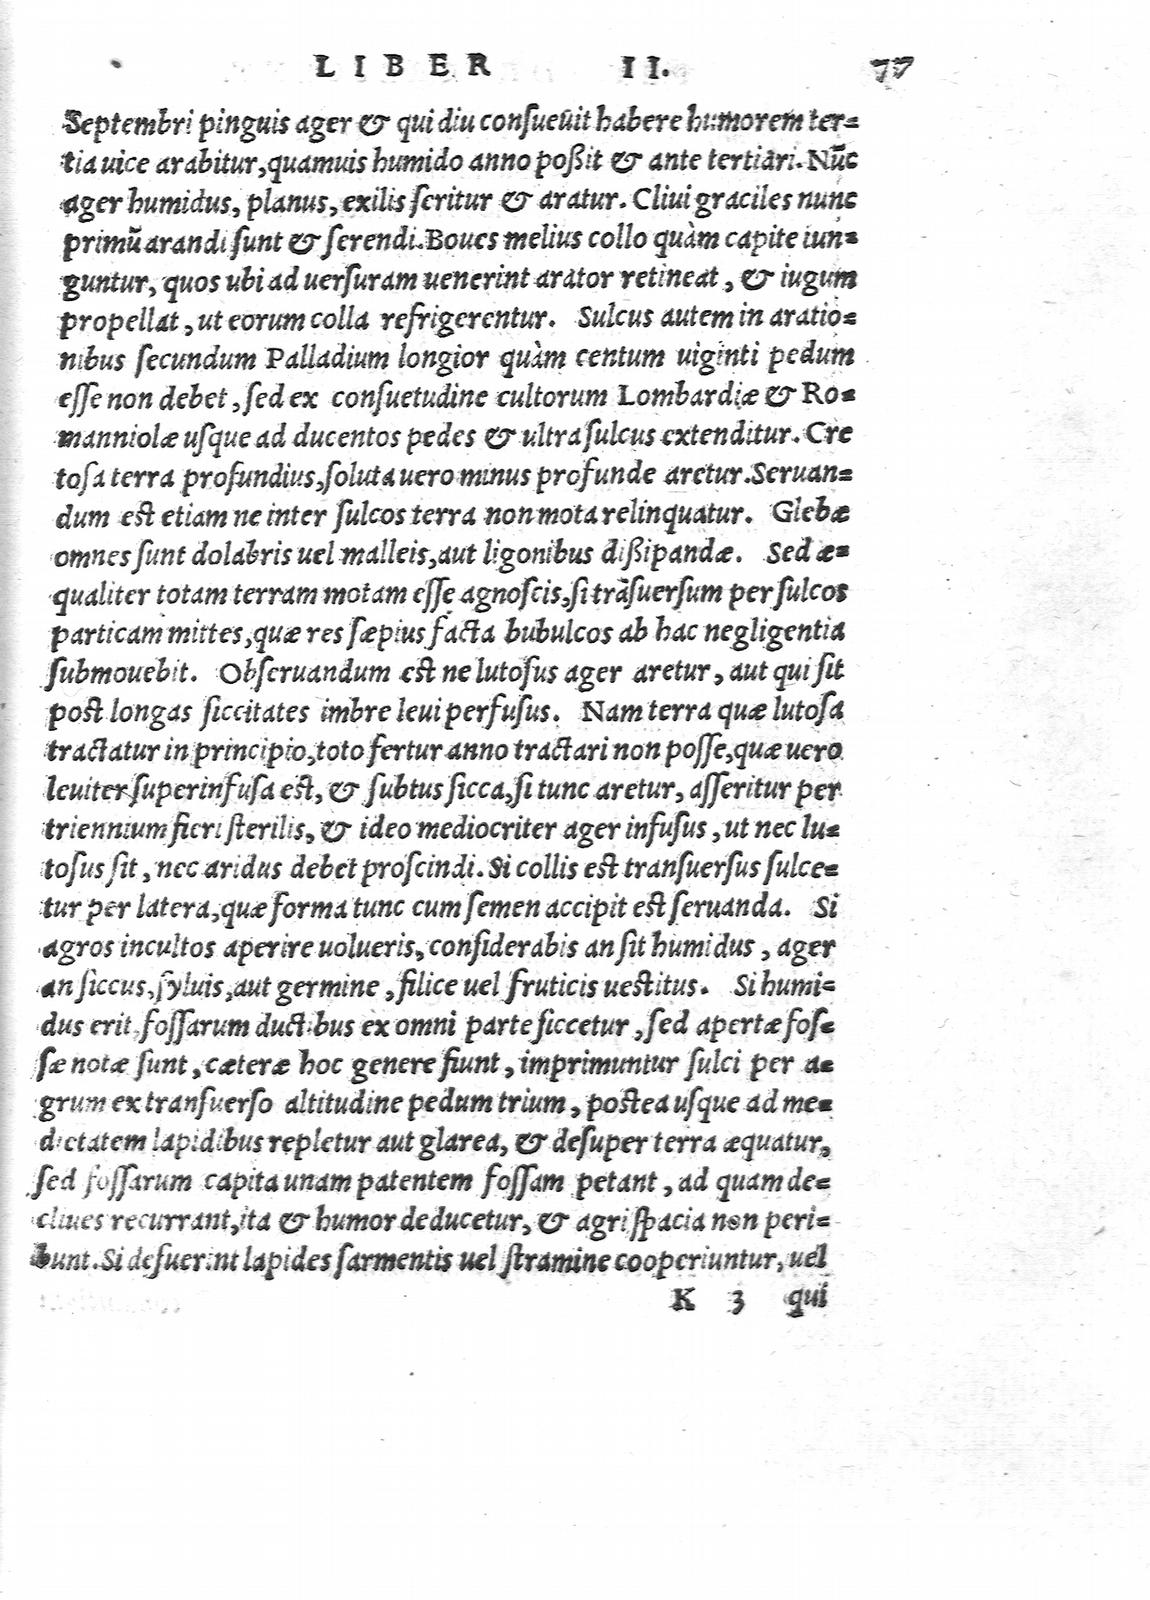 LIBER II. 77
Septembri pinguis ager & qui diu conſueũit habere humorem ter=
tia uice arabitur, quamuis humido anno poßit & ante tertiari. Nūc
ager humidus, planus, exilis ſeritur & aratur. Cliui graciles nunc
primū arandi ſunt & ſerendi. Boues melius collo quàm capite iun=
guntur, quos ubi ad uerſuram uenerint arator retineat, & iugum
propellat, ut eorum colla refrigerentur. Sulcus autem in aratio=
nibus ſecundum Palladium longior quàm centum uiginti pedum
eſſe non debet, ſed ex conſuetudine cultorum Lombardiæ & Ro=
manniolæ uſque ad ducentos pedes & ultra ſulcus extenditur. Cre
toſa terra profundius, ſoluta uero minus profunde aretur. Seruan=
dum est etiam ne inter ſulcos terra non mota relinquatur. Glebæ
omnes ſunt dolabris uel malleis, aut ligonibus dißipandæ. Sed æ=
qualiter totam terram motam eſſe agnoſcis, ſi trāſuerſum per ſulcos
particam mittes, quæ res ſæpius facta bubulcos ab hac negligentia
ſubmouebit. Obſeruandum est ne lutoſus ager aretur, aut qui ſit
post longas ſiccitates imbre leui perfuſus. Nam terra quæ lutoſa
tractatur in principio, toto fertur anno tractari non poſſe, quæ uero
leuiter ſuperinfuſa est, & ſubtus ſicca, ſi tunc aretur, aſſeritur per
triennium fieri ſterilis, & ideo mediocriter ager infuſus, ut nec lu=
toſus ſit, nec aridus debet proſcindi. Si collis est tranſuerſus ſulce=
tur per latera, quæ forma tunc cum ſemen accipit est ſeruanda. Si
agros incultos aperire uolueris, conſiderabis an ſit humidus, ager
an ſiccus, ſyluis, aut germine, filice uel fruticis uestitus. Si humi=
dus erit, foſſarum ductibus ex omni parte ſiccetur, ſed apertæ foſ=
ſæ notæ ſunt, cæteræ hoc genere fiunt, imprimuntur ſulci per a=
grum ex tranſuerſo altitudine pedum trium, postea uſque ad me=
dietatem lapidibus repletur aut glarea, & deſuper terra æquatur,
ſed foſſarum capita unam patentem foſſam petant, ad quam de=
cliues recurrant, ita & humor deducetur, & agri ſpacia non peri=
bunt. Si defuerint lapides ſarmentis uel ſtramine cooperiuntur, uel
K 3 qui